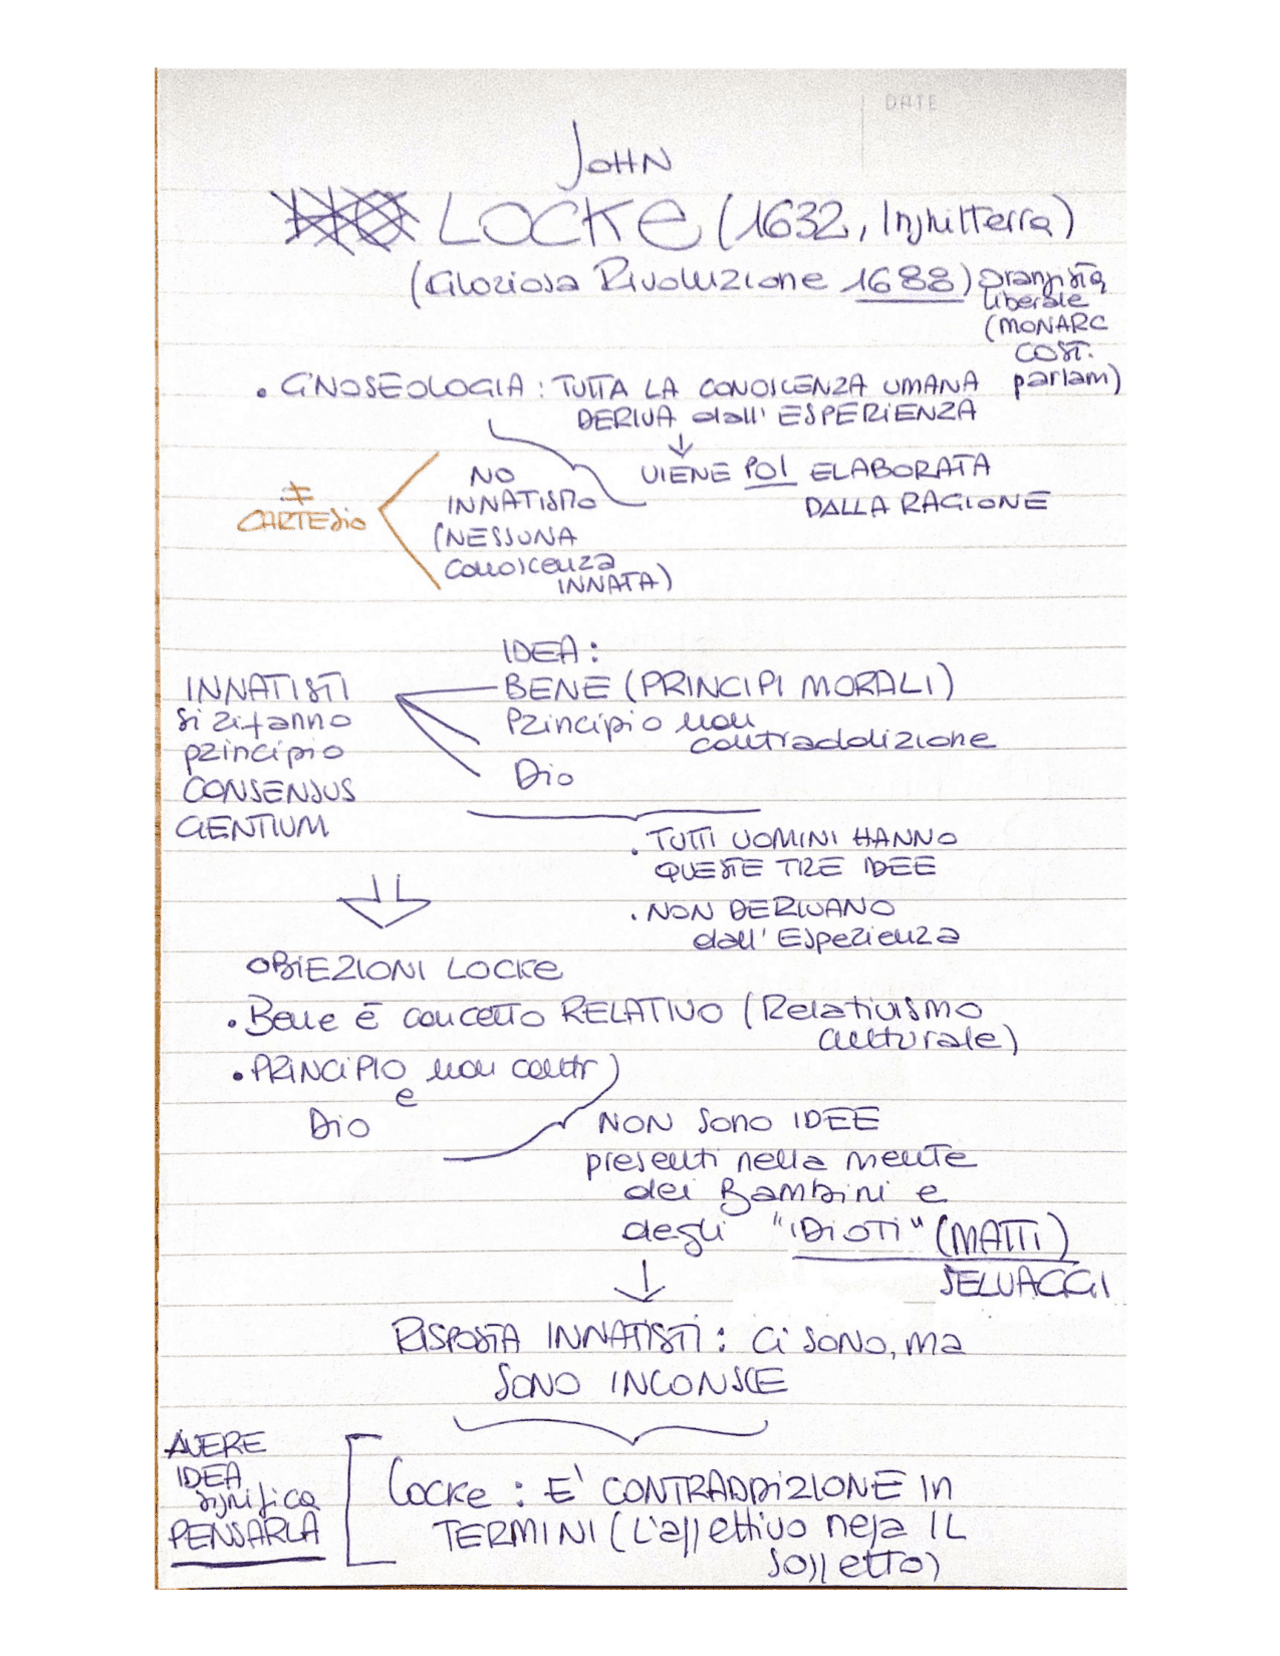 DATE
JOHN
LOCKE (1632, Inghilterra)
(Gloriosa Rivoluzione 1688) orangista
liberale
(MONARC
COST.
parlam)
. GNOSEOLOGIA : TUTTA LA CONOSCENZA UMANA
DERIVA dall' ESPERIENZA
↓
VIENE POI ELABORATA
DALLA RAGIONE
≠
CARTESIO
NO
INNATISMO
(NESSUNA
conoscenza
INNATA)
IDEA :
INNATISTI
si rifanno
principio
CONSENSUS
GENTIUM
BENE (PRINCIPI MORALI)
Principio non
contraddizione
Dio
. TUTTI UOMINI HANNO
QUESTE TRE IDEE
. NON DERIVANO
dall' Esperienza
OBIEZIONI LOCKE
. Bene è concetto RELATIVO (Relativismo
culturale)
. PRINCIPIO non contr
e
Dio
NON sono IDEE
presenti nella mente
dei Bambini e
degli "IDIOTI" (MATTI)
SELVAGGI
↓
RISPOSTA INNATISTI : Ci SONO, ma
SONO INCONSCE
AVERE
IDEA
significa
PENSARLA
Locke : E' CONTRADDIZIONE IN
TERMINI (L'aggettivo nega IL
soggetto)